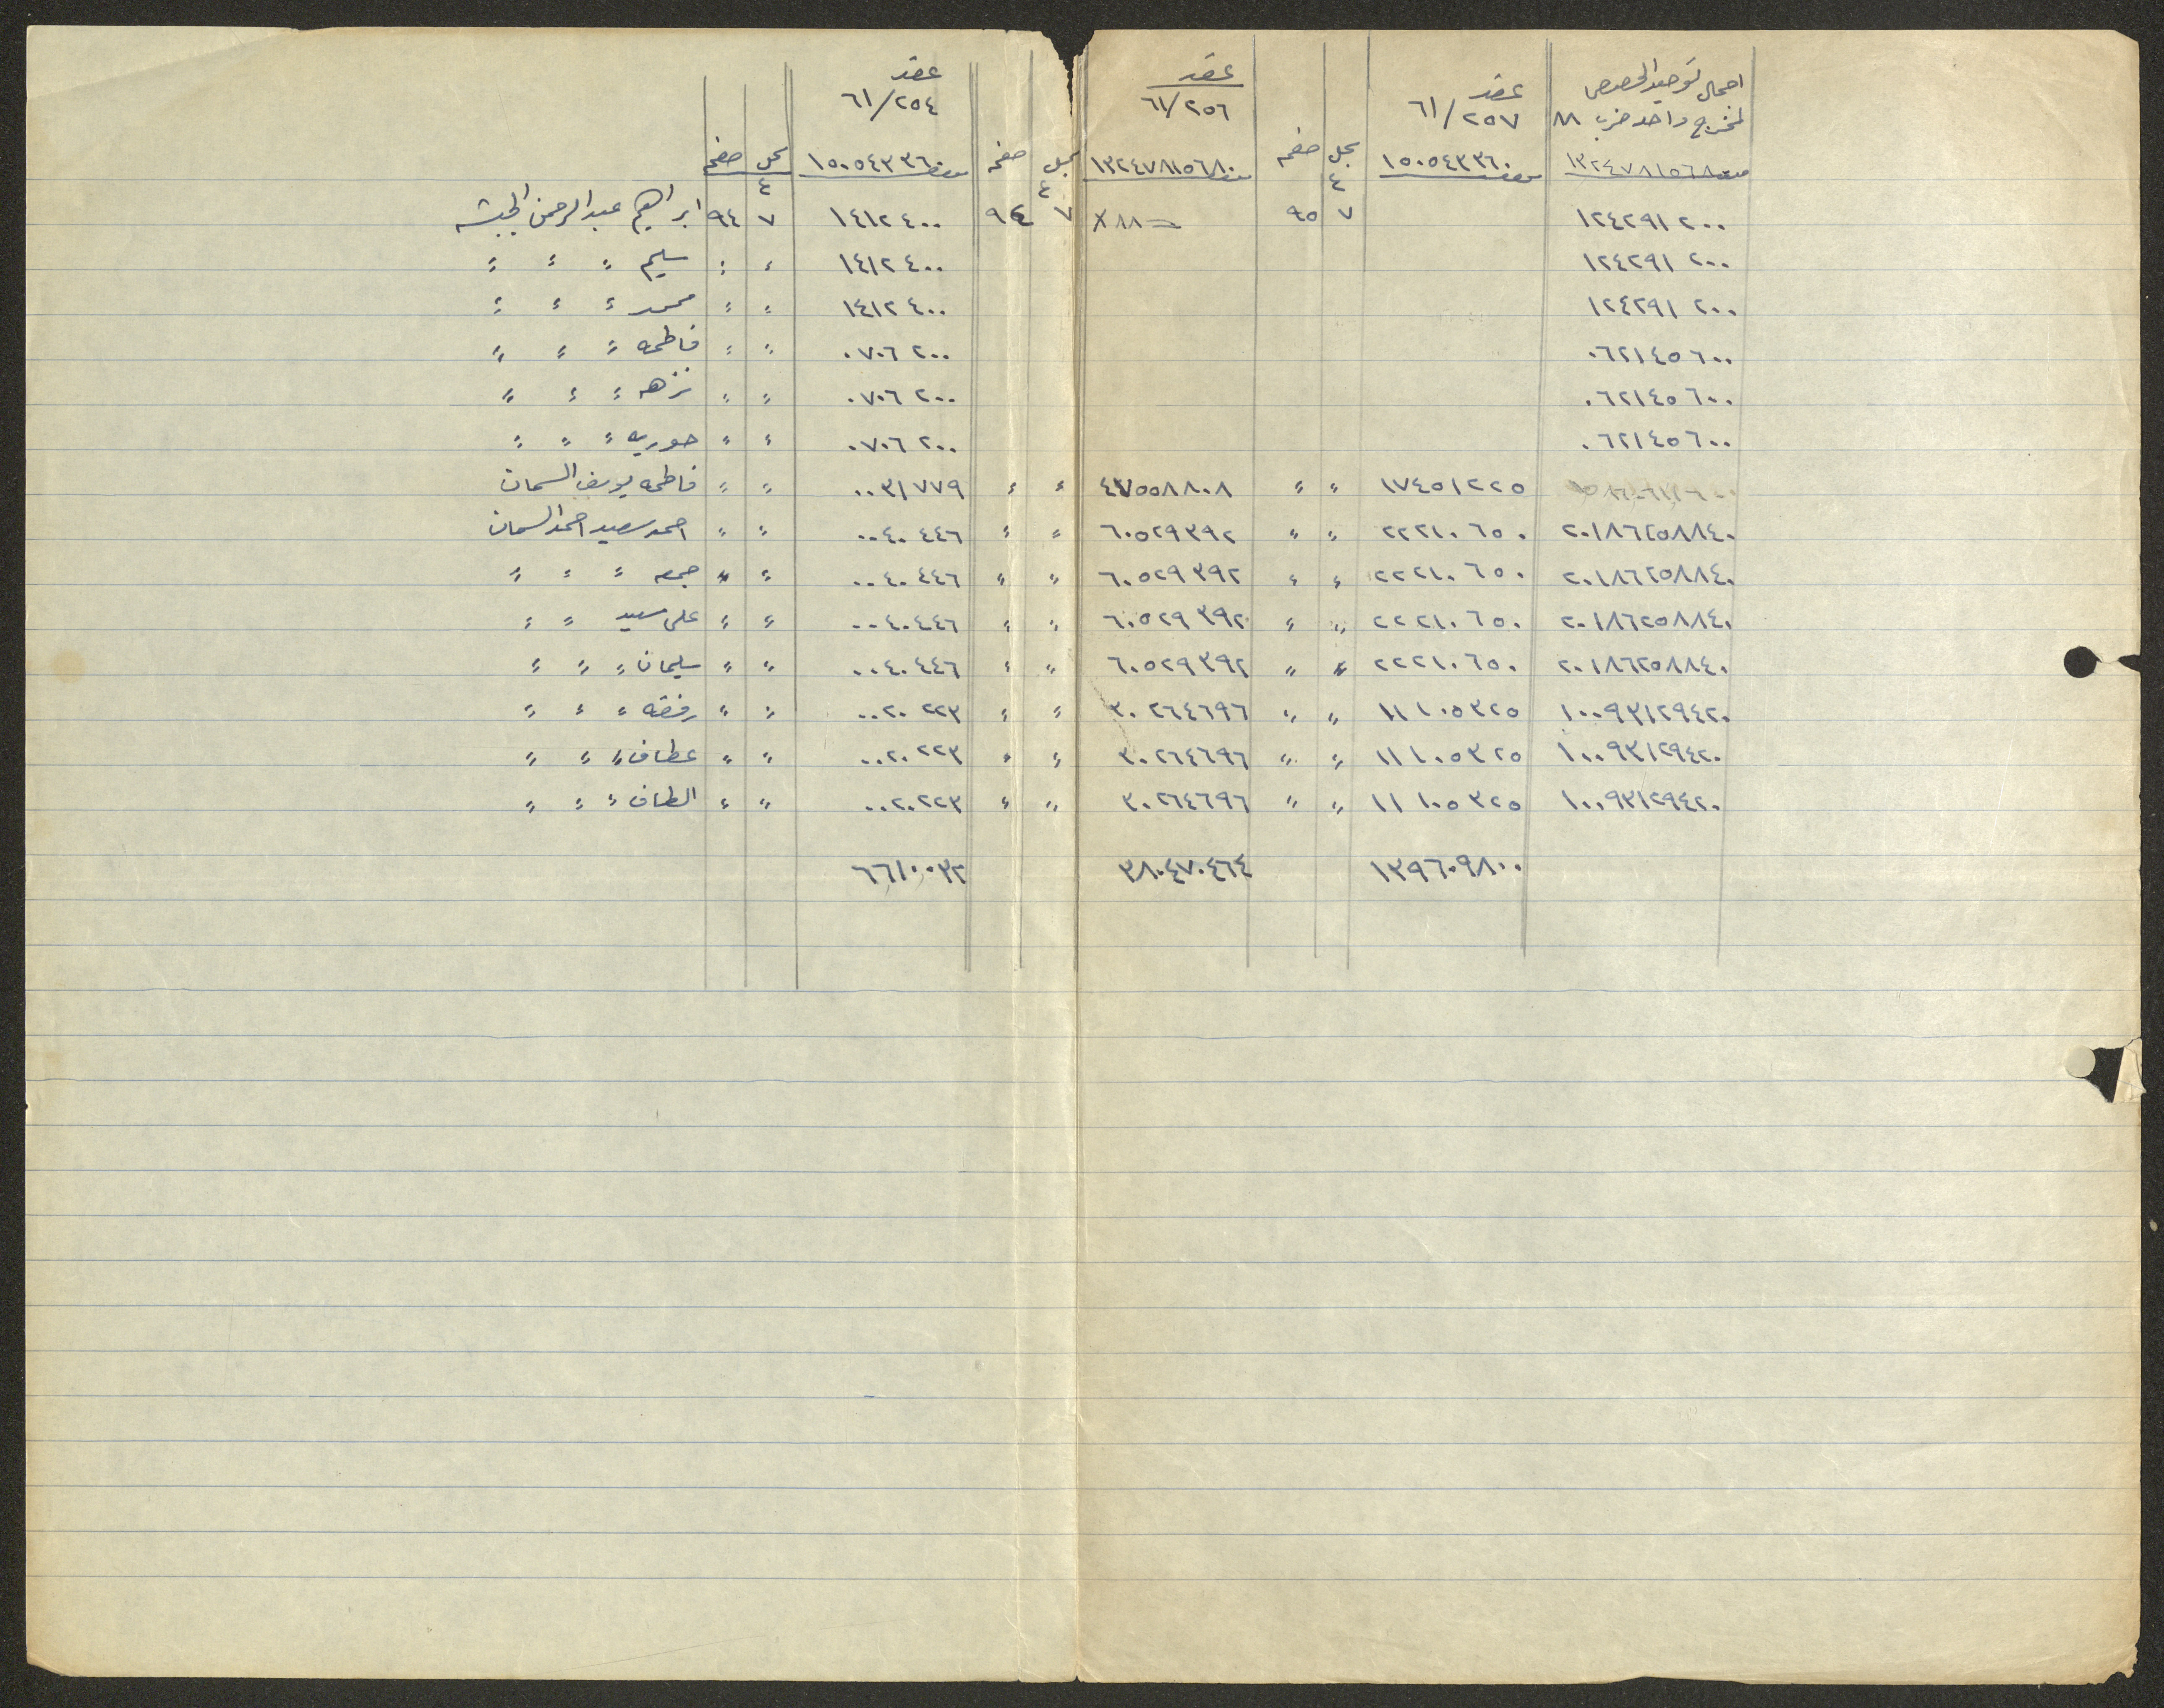 اجمال توحيد الحصص | عقد | | | عقد | | | عقد
لمخرج واحد ضرب ٨٨ | ٦١/٢٥٧ | | | ٦١/٢٥٦ | | | ٦١/٢٥٤
١٣٢٤٧٨١٥٦٨٠ | ١٥٠٥٤٣٣٦٠ | سجل ٤ | صفحه | ١٣٢٤٧٨١٥٦٨٠ | سجل ٤ | صفحه | ١٥٠٥٤٣٣٦٠ | سجل ٤ | صفحه
١٢٤٢٩١٢٠٠ | | ٧ | ٩٥ | = ٨٨ × | ٧ | ٩٤ | ١٤١٢٤٠٠ | ٧ | ٩٤ | ابراهيم عبد الرحمن
١٢٤٢٩١٢٠٠ | ١٤١٢٤٠٠ | " | " | سليم " " "
١٢٤٢٩١٢٠٠ | ١٤١٢٤٠٠ | " | " | محمد " " "
٠٦٢١٤٥٦٠٠ | ٠٧٠٦٢٠٠ | " | " | فاطمه " " "
٠٦٢١٤٥٦٠٠ | ٠٧٠٦٢٠٠ | " | " | نزهه " " "
٠٦٢١٤٥٦٠٠ | ٠٧٠٦٢٠٠ | " | " | حوريه " " "
١٧٤٥١٢٢٥ | " | " | ٤٧٥٥٨٨٠٨ | " | " | ٠٠٣١٧٧٩ | " | " | فاطمه يوسف السمان
٢٠١٨٦٢٥٨٨٤٠ | ٢٢٢١٠٦٥٠ | " | " | ٦٠٥٢٩٣٩٢ | " | " | ٠٠٤٠٤٤٦ | " | " | احمد سعيد احمد السمان
٢٠١٨٦٢٥٨٨٤٠ | ٢٢٢١٠٦٥٠ | " | " | ٦٠٥٢٩٣٩٢ | " | " | ٠٠٤٠٤٤٦ | " | " | جمعه " " "
٢٠١٨٦٢٥٨٨٤٠ | ٢٢٢١٠٦٥٠ | " | " | ٦٠٥٢٩٣٩٢ | " | " | ٠٠٤٠٤٤٦ | " | " | على سعيد " "
٢٠١٨٦٢٥٨٨٤٠ | ٢٢٢١٠٦٥٠ | " | " | ٦٠٥٢٩٣٩٢ | " | " | ٠٠٤٠٤٤٦ | " | " | سليمان " " "
١٠٠٩٣١٢٩٤٢٠ | ١١١٠٥٣٢٥ | " | " | ٣٠٢٦٤٦٩٦ | " | " | ٠٠٢٠٢٢٣ | " | " | رفقه " " "
١٠٠٩٣١٢٩٤٢٠ | ١١١٠٥٣٢٥ | " | " | ٣٠٢٦٤٦٩٦ | " | " | ٠٠٢٠٢٢٣ | " | " | عطاف " " "
١٠٠٩٣١٢٩٤٢٠ | ١١١٠٥٣٢٥ | " | " | ٣٠٢٦٤٦٩٦ | " | " | ٠٠٢٠٢٢٣ | " | " | الطاف " " "
١٣٩٦٠٩٨٠٠ | ٣٨٠٤٧٠٤٦٤ | ٦٦١٠٠٣٢